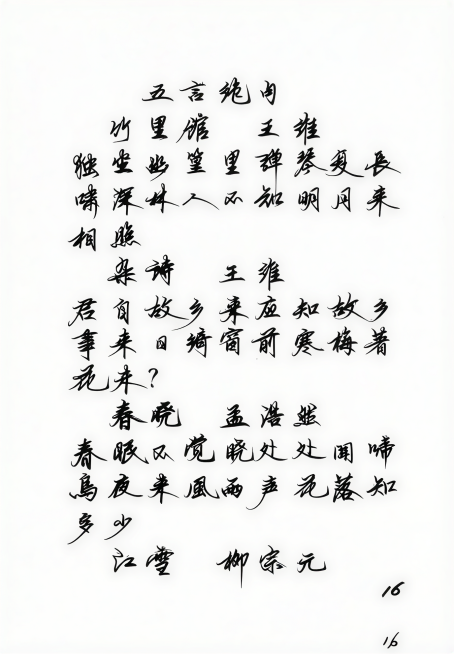 五言绝句
竹里馆 王维
独坐幽篁里弹琴复長
啸深林人不知明月来
相照
杂诗 王维
君自故乡来应知故乡
事来日绮窗前寒梅著
花未?
春晓 孟浩然
春眠不觉晓处处闻啼
鳥夜来風雨声花落知
多少
江雪 柳宗元
16
16